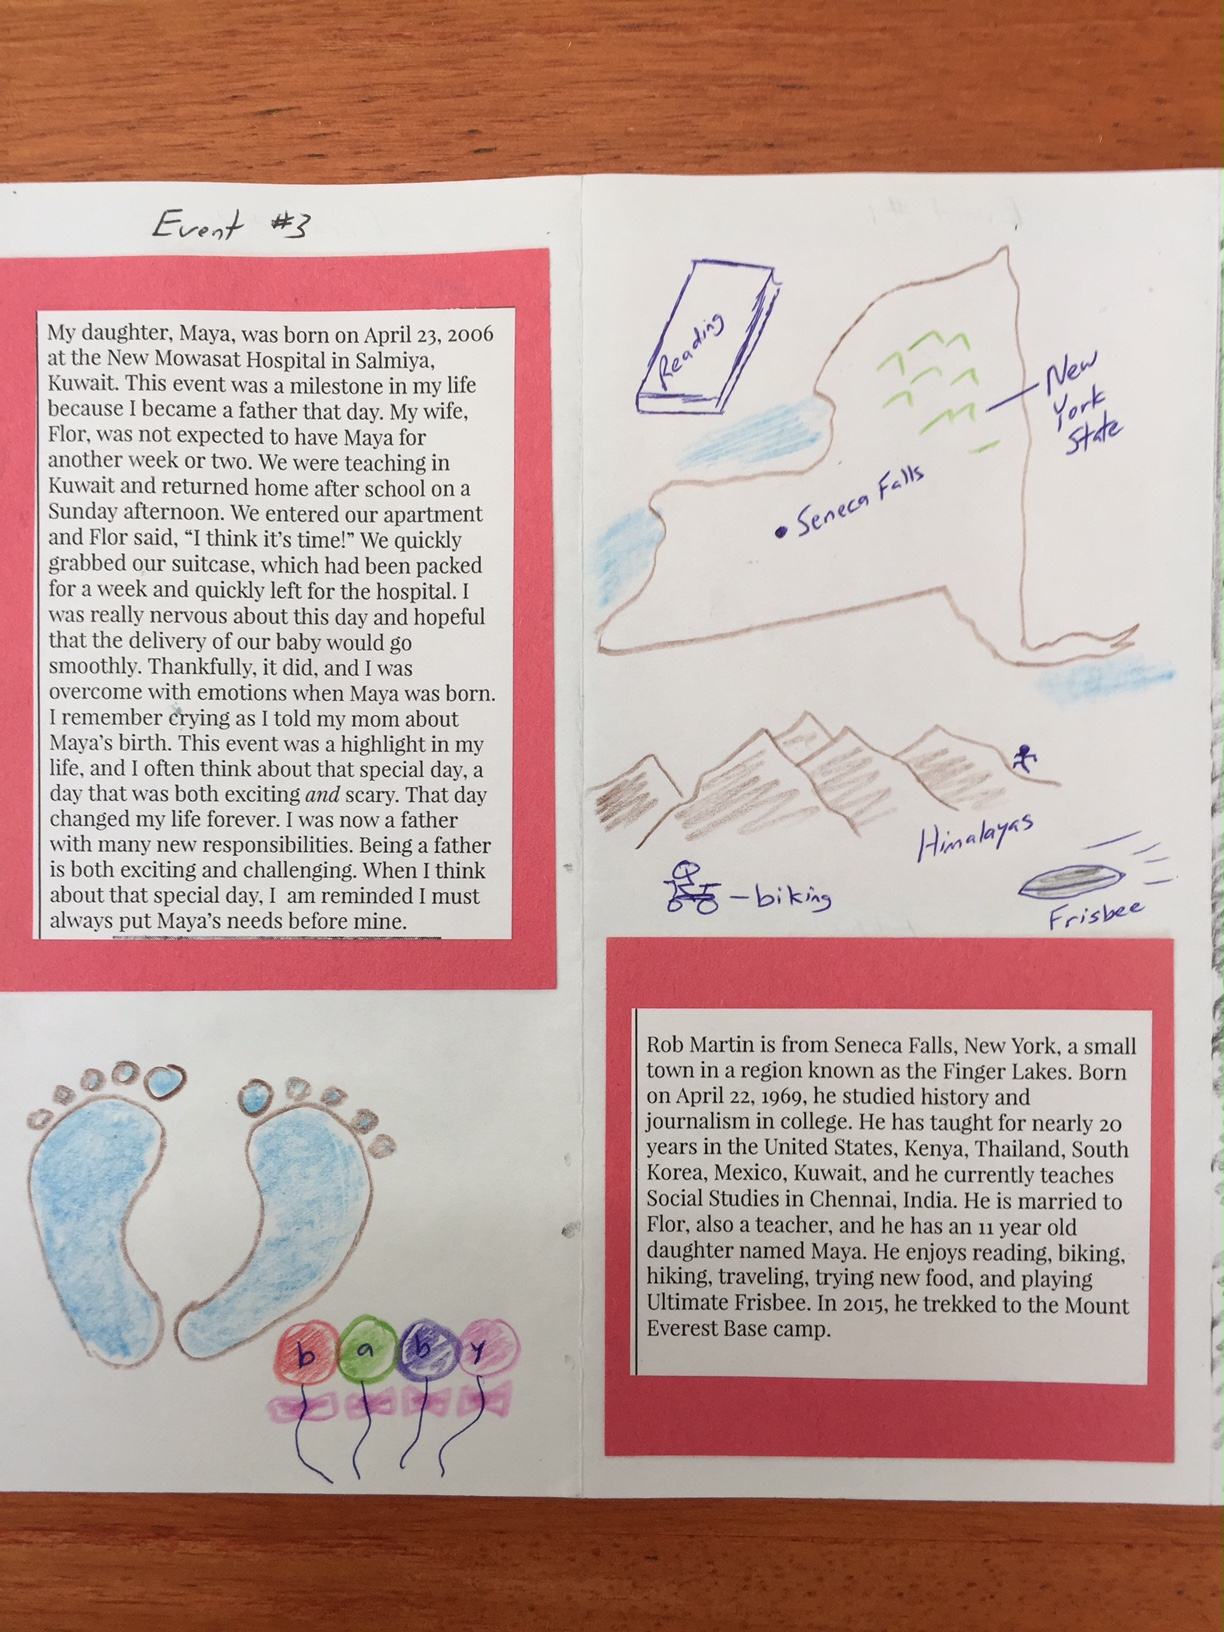 Event #3
My daughter, Maya, was born on April 23, 2006
at the New Mowasat Hospital in Salmiya,
Kuwait. This event was a milestone in my life
because I became a father that day. My wife,
Flor, was not expected to have Maya for
another week or two. We were teaching in
Kuwait and returned home after school on a
Sunday afternoon. We entered our apartment
and Flor said, “I think it’s time!” We quickly
grabbed our suitcase, which had been packed
for a week and quickly left for the hospital. I
was really nervous about this day and hopeful
that the delivery of our baby would go
smoothly. Thankfully, it did, and I was
overcome with emotions when Maya was born.
I remember crying as I told my mom about
Maya’s birth. This event was a highlight in my
life, and I often think about that special day, a
day that was both exciting and scary. That day
changed my life forever. I was now a father
with many new responsibilities. Being a father
is both exciting and challenging. When I think
about that special day, I am reminded I must
always put Maya’s needs before mine.
b a b y
Reading
New
York
State
Seneca Falls
Himalayas
- biking
Frisbee
Rob Martin is from Seneca Falls, New York, a small
town in a region known as the Finger Lakes. Born
on April 22, 1969, he studied history and
journalism in college. He has taught for nearly 20
years in the United States, Kenya, Thailand, South
Korea, Mexico, Kuwait, and he currently teaches
Social Studies in Chennai, India. He is married to
Flor, also a teacher, and he has an 11 year old
daughter named Maya. He enjoys reading, biking,
hiking, traveling, trying new food, and playing
Ultimate Frisbee. In 2015, he trekked to the Mount
Everest Base camp.